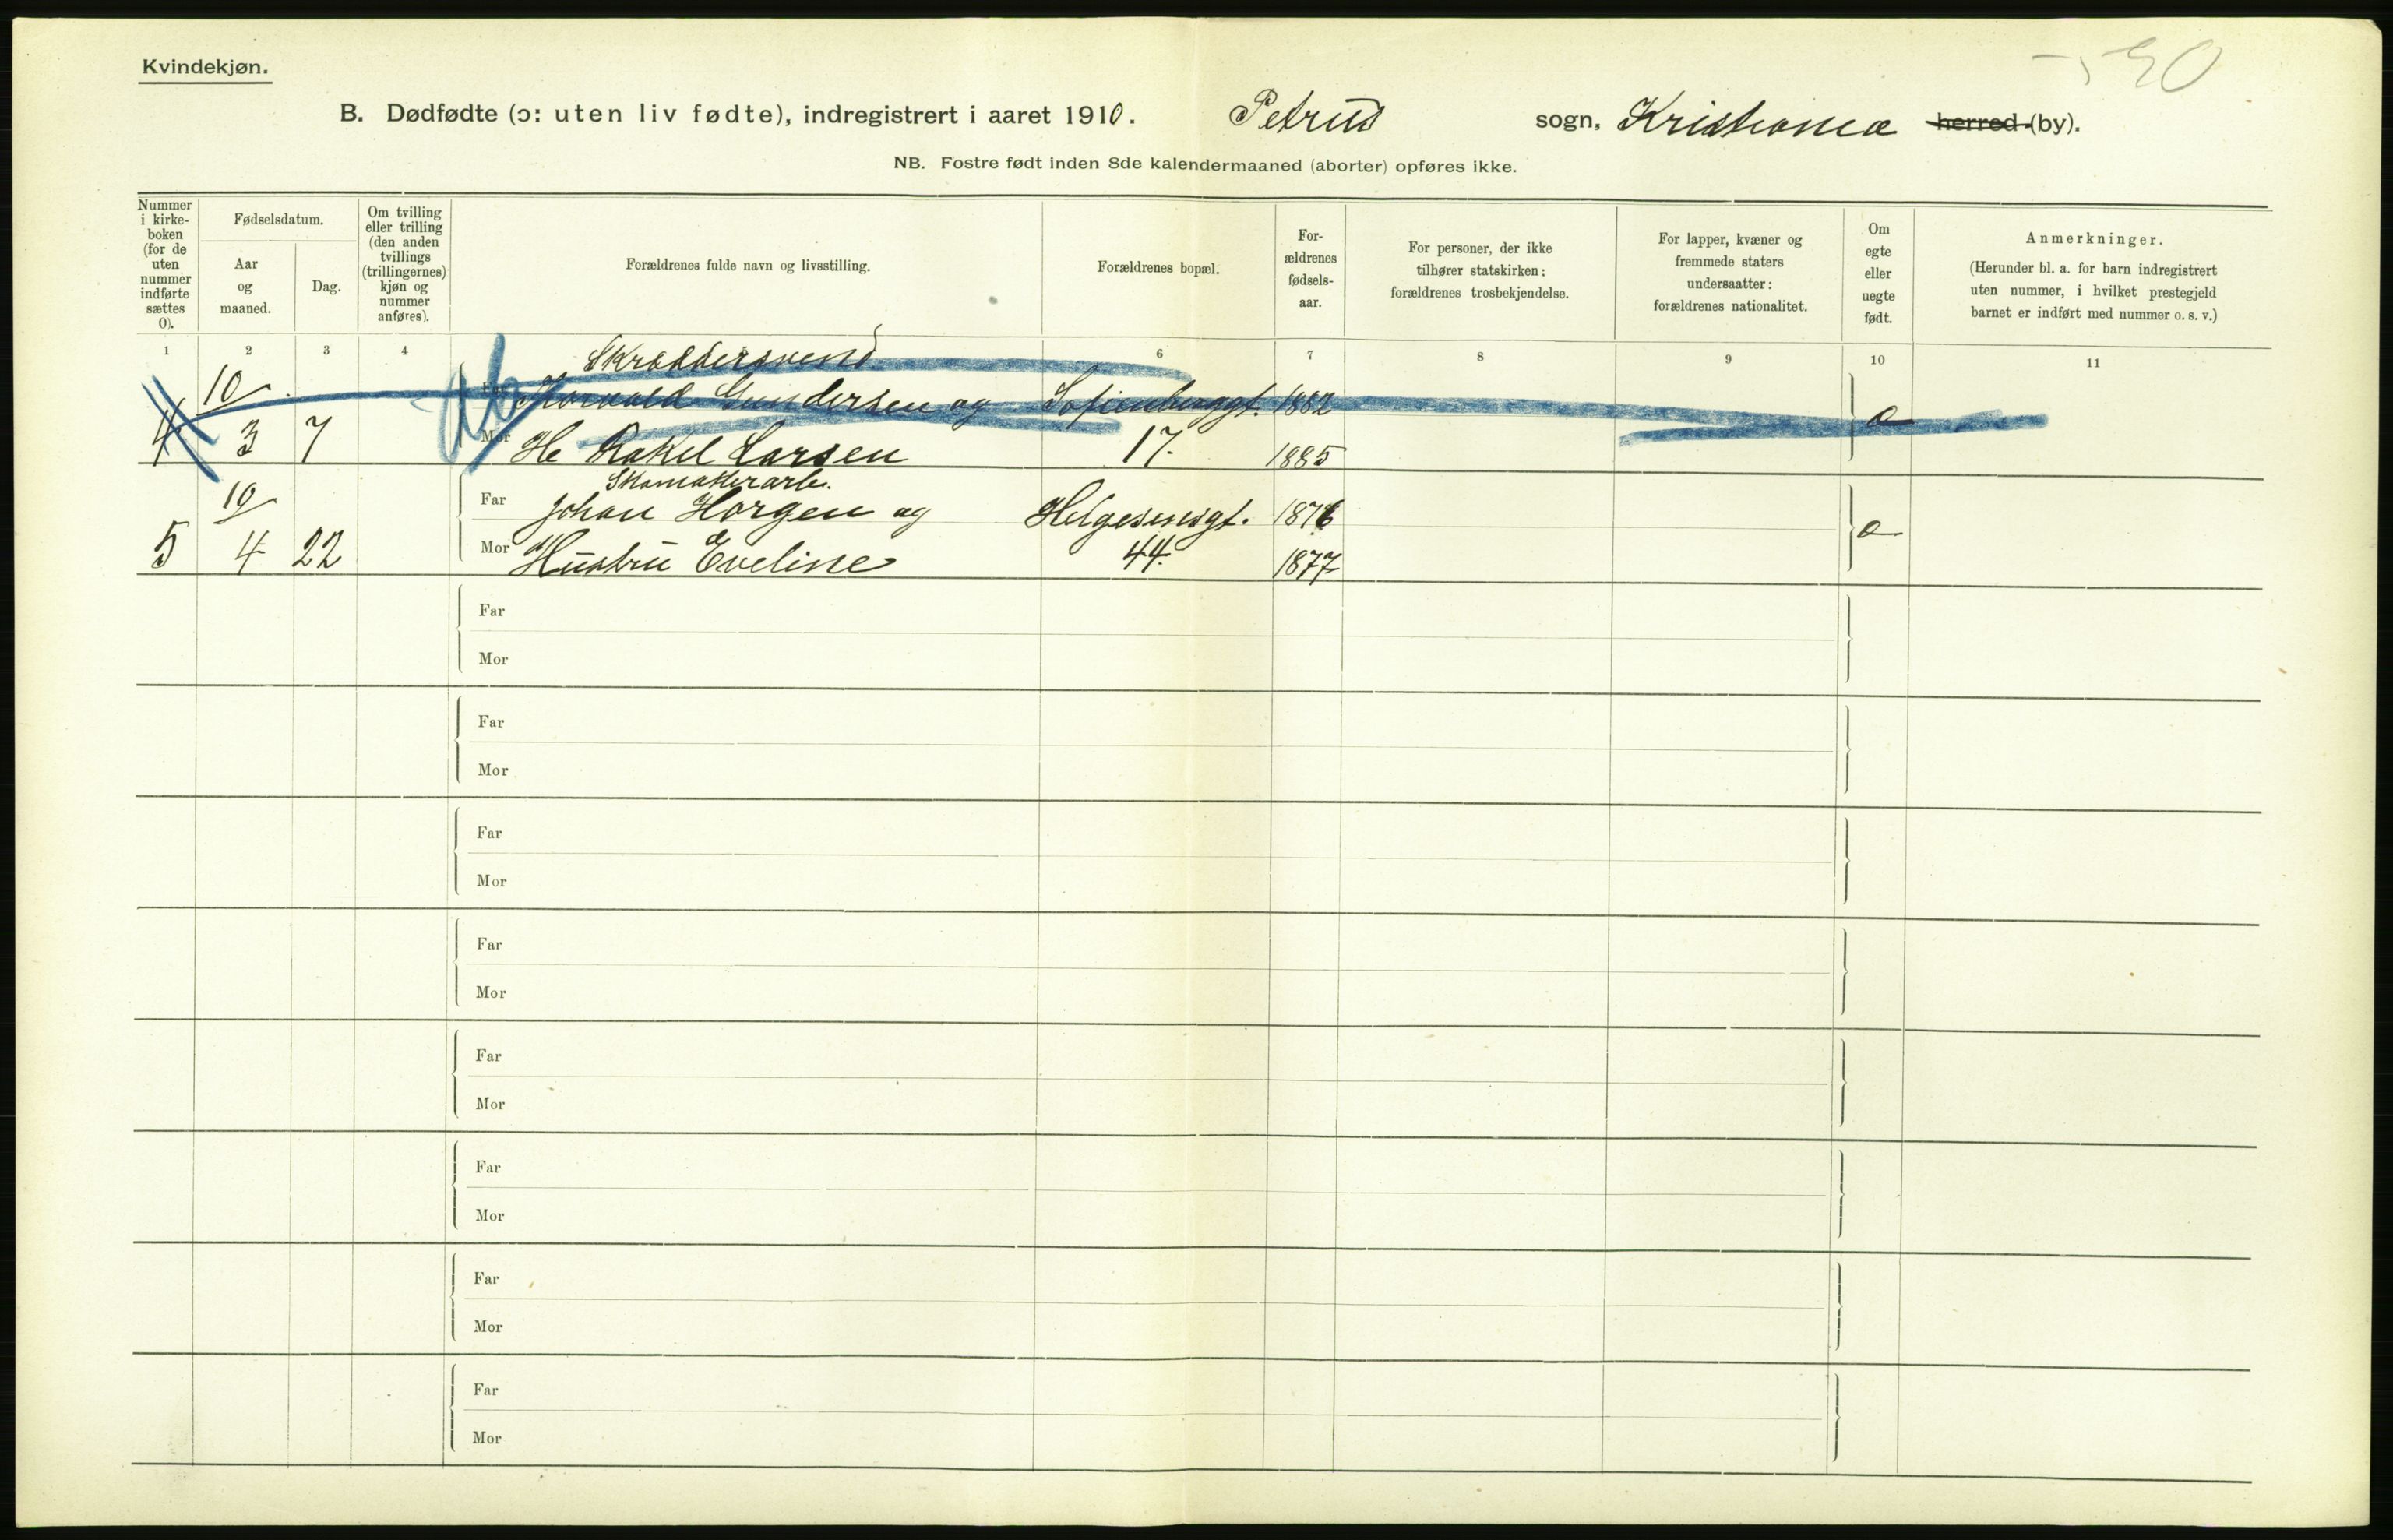 Kvindekjøn.
B. Dødfødte (ɔ: uten liv fødte), indregistrert i aaret 1910. Petrus sogn, Kristiania herred (by).
NB. Fostre født inden 8de kalendermaaned (aborter) opføres ikke.
Nummer
i kirke-
boken
(for de
uten
nummer
indførte
sættes
0).
Fødselsdatum.
Aar
og
maaned.
Dag.
Om tvilling
eller trilling
(den anden
tvillings
(trillingernes)
kjøn og
nummer
anføres).
Forældrenes fulde navn og livsstilling.
Forældrenes bopæl.
For-
ældrenes
fødsels-
aar.
For personer, der ikke
tilhører statskirken:
forældrenes trosbekjendelse.
For lapper, kvæner og
fremmede staters
undersaatter:
forældrenes nationalitet.
Om
egte
eller
uegte
født.
Anmerkninger.
(Herunder bl. a. for barn indregistrert
uten nummer, i hvilket prestegjeld
barnet er indført med nummer o. s. v.)
1 2 3 4 6 7 8 9 10 11
Skræddersvend
10 Far Thorvald Gundersen og Sofienberggt. 1882
4 3 7 Mor He Rakel Larsen 17. 1885
10 Far Johan Horgen og Helgesensgt. 1876
5 4 22 Mor Hustru Eveline 44. 1877
Far
Mor
Far
Mor
Far
Mor
Far
Mor
Far
Mor
Far
Mor
Far
Mor
Far
Mor